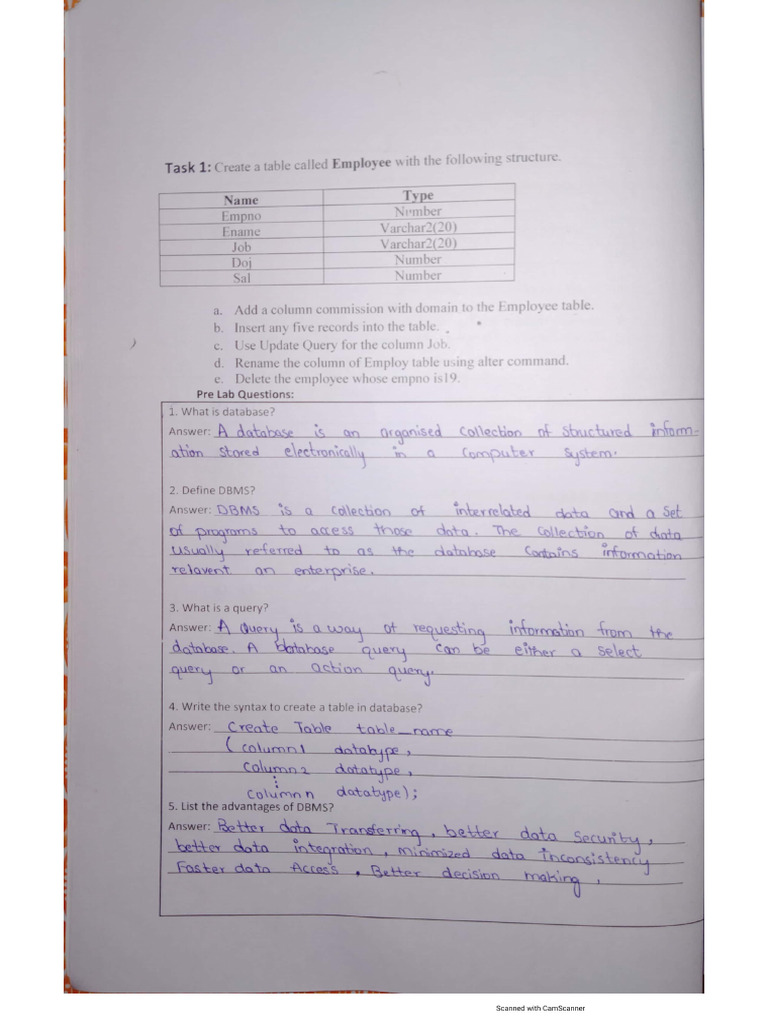 Task 1: Create a table called Employee with the following structure.
Name Type
Empno Number
Ename Varchar2(20)
Job Varchar2(20)
Doj Number
Sal Number
a. Add a column commission with domain to the Employee table.
b. Insert any five records into the table.
c. Use Update Query for the column Job.
d. Rename the column of Employ table using alter command.
e. Delete the employee whose empno is19.
Pre Lab Questions:
1. What is database?
Answer: A database is an organised collection of structured inform-
ation stored electronically in a computer system.
2. Define DBMS?
Answer: DBMS is a collection of interrelated data and a set
of programs to access those data. The collection of data
usually referred to as the database contains information
relavent an enterprise.
3. What is a query?
Answer: A Query is a way of requesting information from the
database. A database query can be either a select
query or an action query.
4. Write the syntax to create a table in database?
Answer: Create Table table_name
(column1 datatype,
column2 datatype,
⋮
columnn datatype);
5. List the advantages of DBMS?
Answer: Better data Transferring, better data security,
better data integration, minimized data inconsistency
Faster data Access, Better decision making,
Scanned with CamScanner